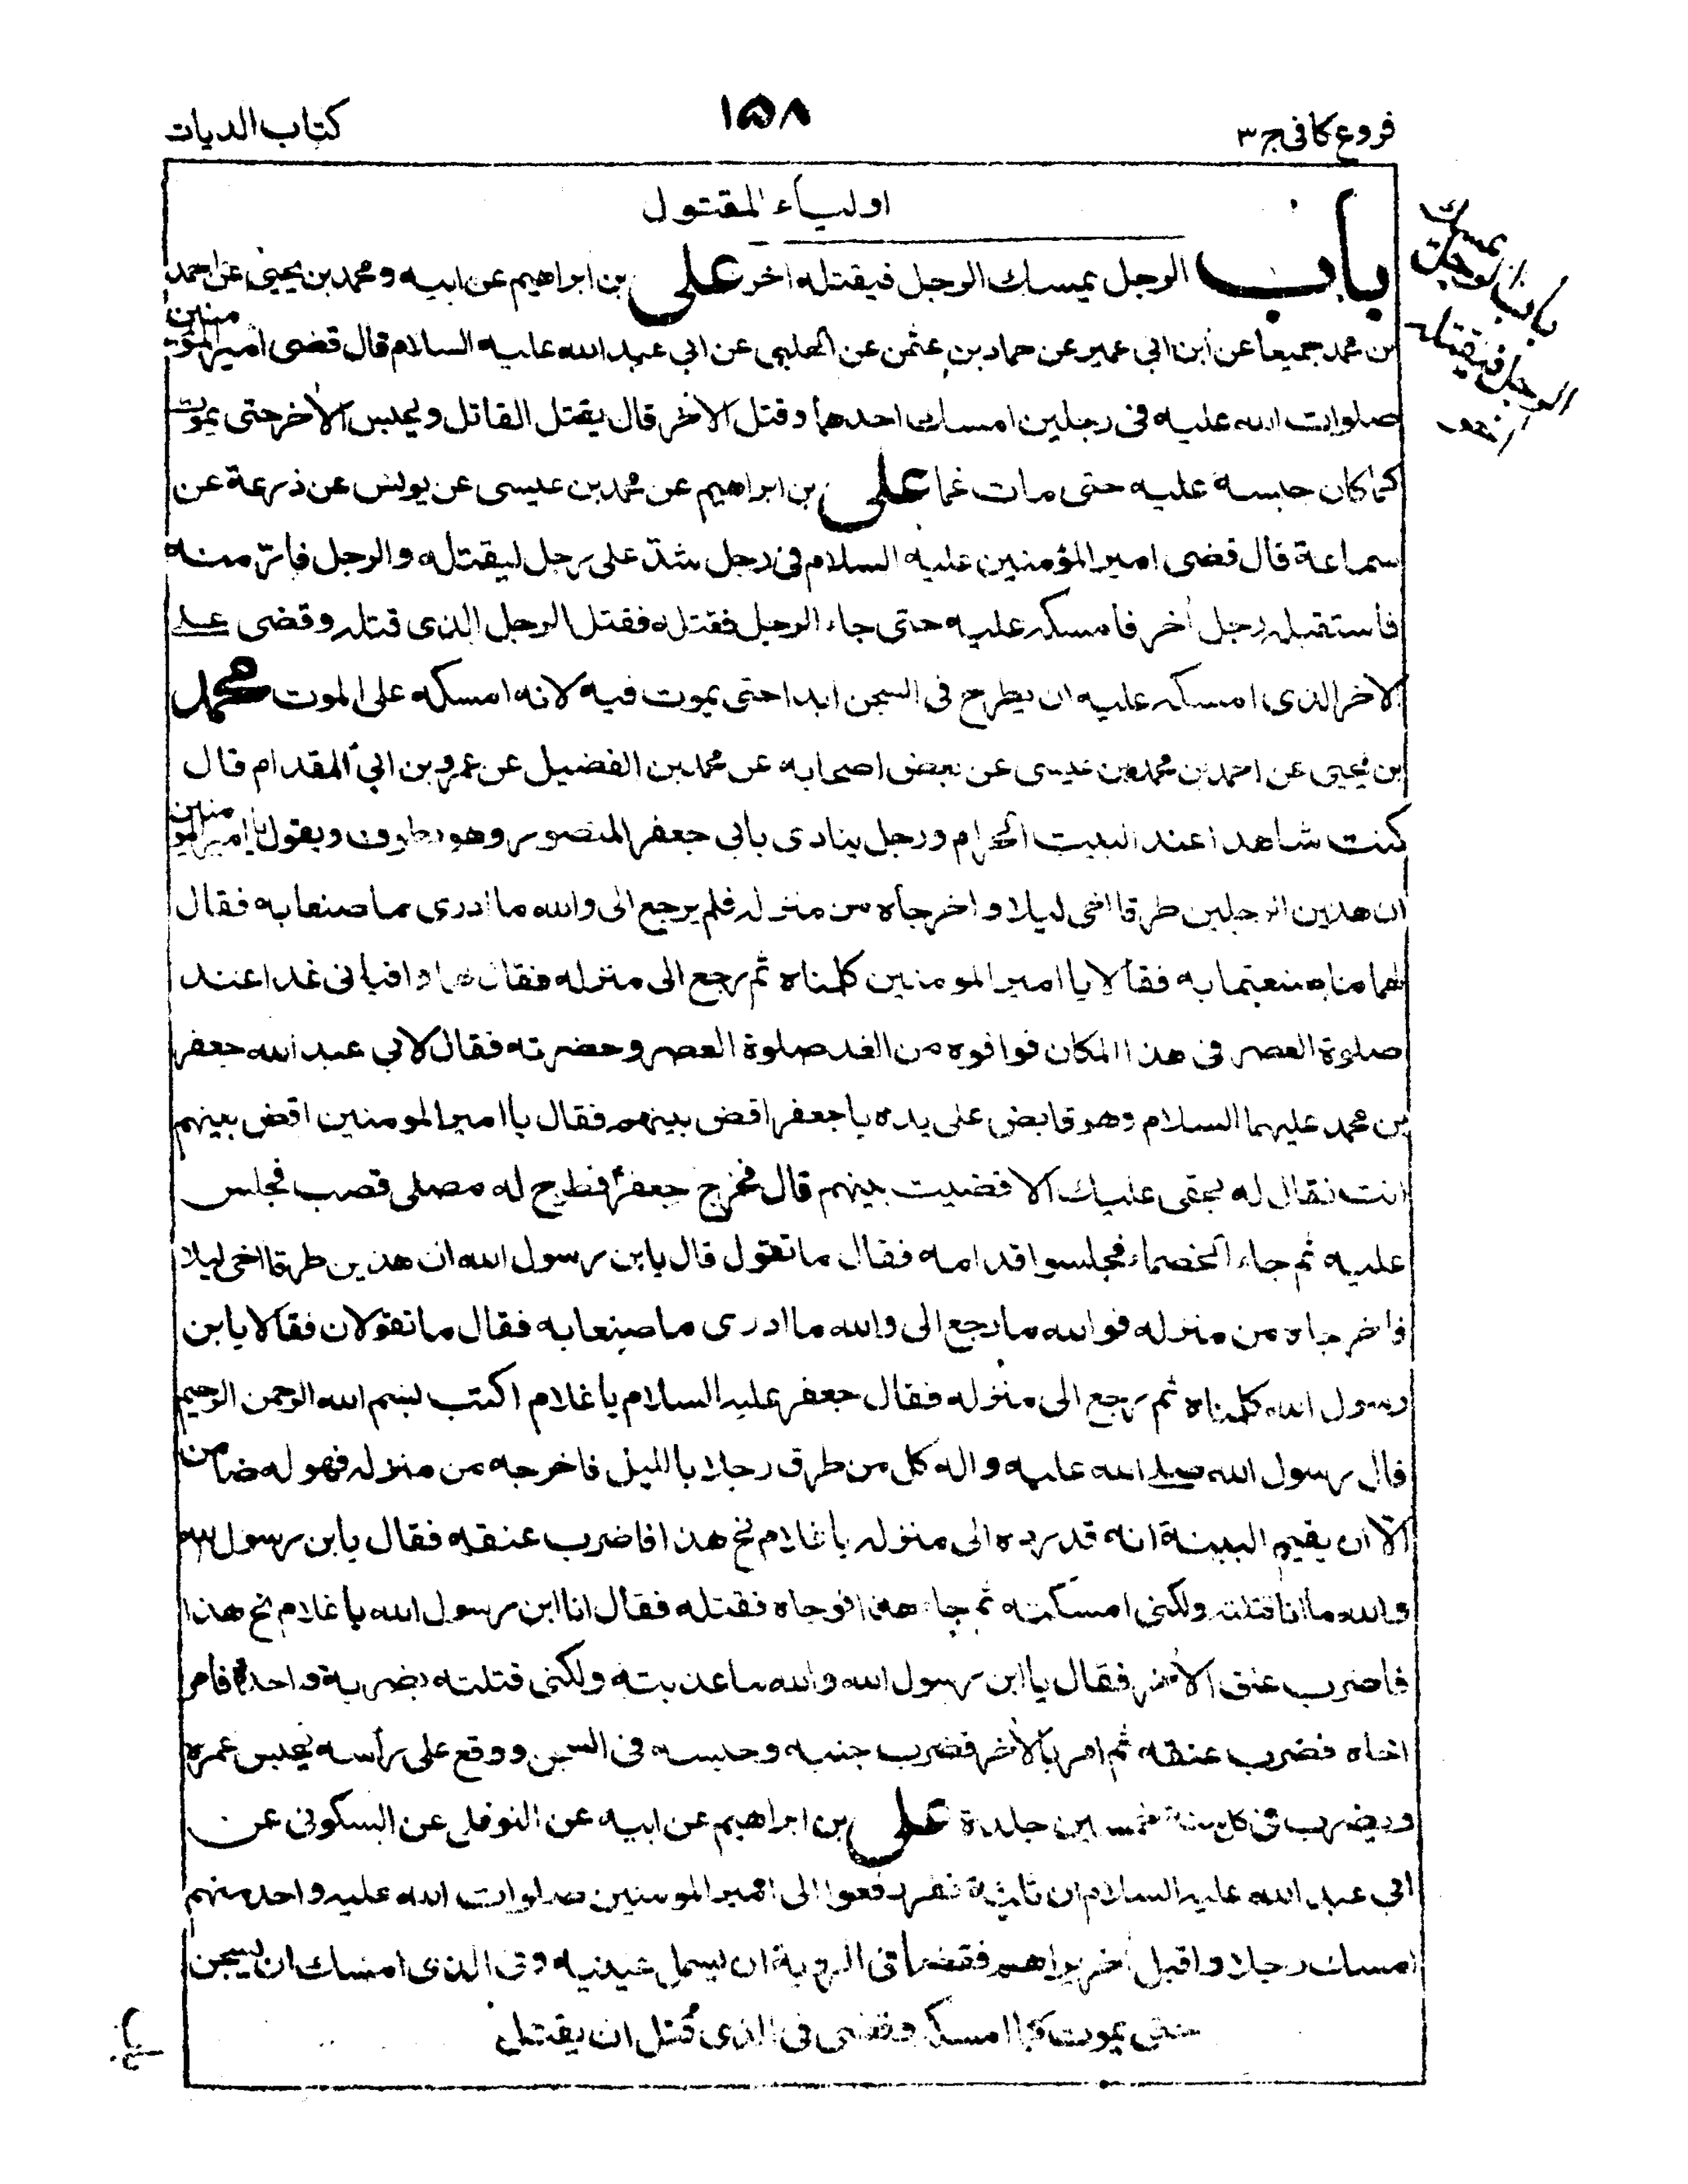 فروع كافى ج ٣
١٥٨
كتاب الديات
اولياء المقتول
باب الرجل يمسك الرجل فيقتله اخر على بن ابراهيم عن ابيه و محمد بن يحيى عن احمد
بن محمد جميعا عن ابن ابي عمير عن حماد بن عثمن عن الحلبي عن ابي عبد الله عليه السلام قال قضى امير المؤمنين
صلوات الله عليه فى رجلين امسك احدهما وقتل الاخر قال يقتل القاتل و يحبس الاخر حتى يموت
كما كان حبسه عليه حتى مات غما على بن ابراهيم عن محمد بن عيسى عن يونس عن زرعة عن
سماعة قال قضى امير المؤمنين عليه السلام فى رجل شدّ على رجل ليقتله والرجل فارّ منه
فاستقبله رجل أخر فامسكه عليه حتى جاء الرجل فقتله فقتل الرجل الذى قتله وقضى على
الاخر الذى امسكه عليه ان يطرح فى السجن ابدا حتى يموت فيه لانه امسكه على الموت محمد
بن يحيى عن احمد بن محمد بن عيسى عن بعض اصحابه عن محمد بن الفضيل عن عمرو بن ابي المقدام قال
كنت شاهدا عند البيت الحرام ورجل ينادى بابي جعفر المنصور وهو يطوف ويقول يا امير المؤمنين
ان هذين الرجلين طرقا اخى ليلا واخرجاه من منزله فلم يرجع الى والله ما ادرى ما صنعا به فقال
لهما ما صنعتما به فقالا يا امير المومنين كلمناه ثم رجع الى منزله فقال لهما وافيانى غدا عند
صلوة العصر فى هذا المكان فوافوه من الغد صلوة العصر وحضرته فقال لابي عبد الله جعفر
بن محمد عليهما السلام وهو قابض على يده يا جعفر اقض بينهم فقال يا امير المومنين اقض بينهم
انت فقال له بحقى عليك الا قضيت بينهم قال فخرج جعفر فطرح له مصلى قصب فجلس
عليه ثم جاء الخصماء فجلسوا قدامه فقال ما تقول قال يابن رسول الله ان هذين طرقا اخى ليلا
فاخرجاه من منزله فوالله ما رجع الى والله ما ادرى ما صنعا به فقال ما تقولان فقالا يابن
رسول الله كلمناه ثم رجع الى منزله فقال جعفر عليه السلام يا غلام اكتب بسم الله الرحمن الرحيم
قال رسول الله صلى الله عليه واله كل من طرق رجلا بالليل فاخرجه من منزله فهو له ضامن
الّا ان يقيم البينة انه قد رده الى منزله يا غلام نح هذا فاضرب عنقه فقال يابن رسول الله
والله ما انا قتلته ولكنى امسكته ثم جاء هذا فوجاه فقتله فقال انا ابن رسول الله يا غلام نح هذا
فاضرب عنق الاخر فقال يا ابن رسول الله والله ما عذبته ولكنى قتلته بضربة واحدة فامر
اخاه فضرب عنقه ثم امر بالاخر فضرب جنبه وحبسه فى السجن ووقع على رأسه يحبس عمره
ويضرب فى كل سنة خمسين جلدة على بن ابراهيم عن ابيه عن النوفلى عن السكونى عن
ابي عبد الله عليه السلام ان ثلثة نفر رفعوا الى امير المومنين صلوات الله عليه واحد منهم
امسك رجلا واقبل أخر يراهم فقضى فى الروية ان يسمل عينيه وفى الذى امسك ان يسجن
حتى يموت كما امسكه وقضى فى الذى قتل ان يقتل
باب الرجل يمسك
الرجل فيقتله
اخر